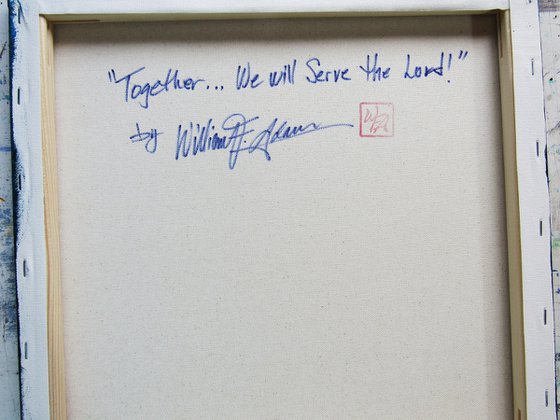 "Together... We will Serve the Lord!"
by William F. Adams